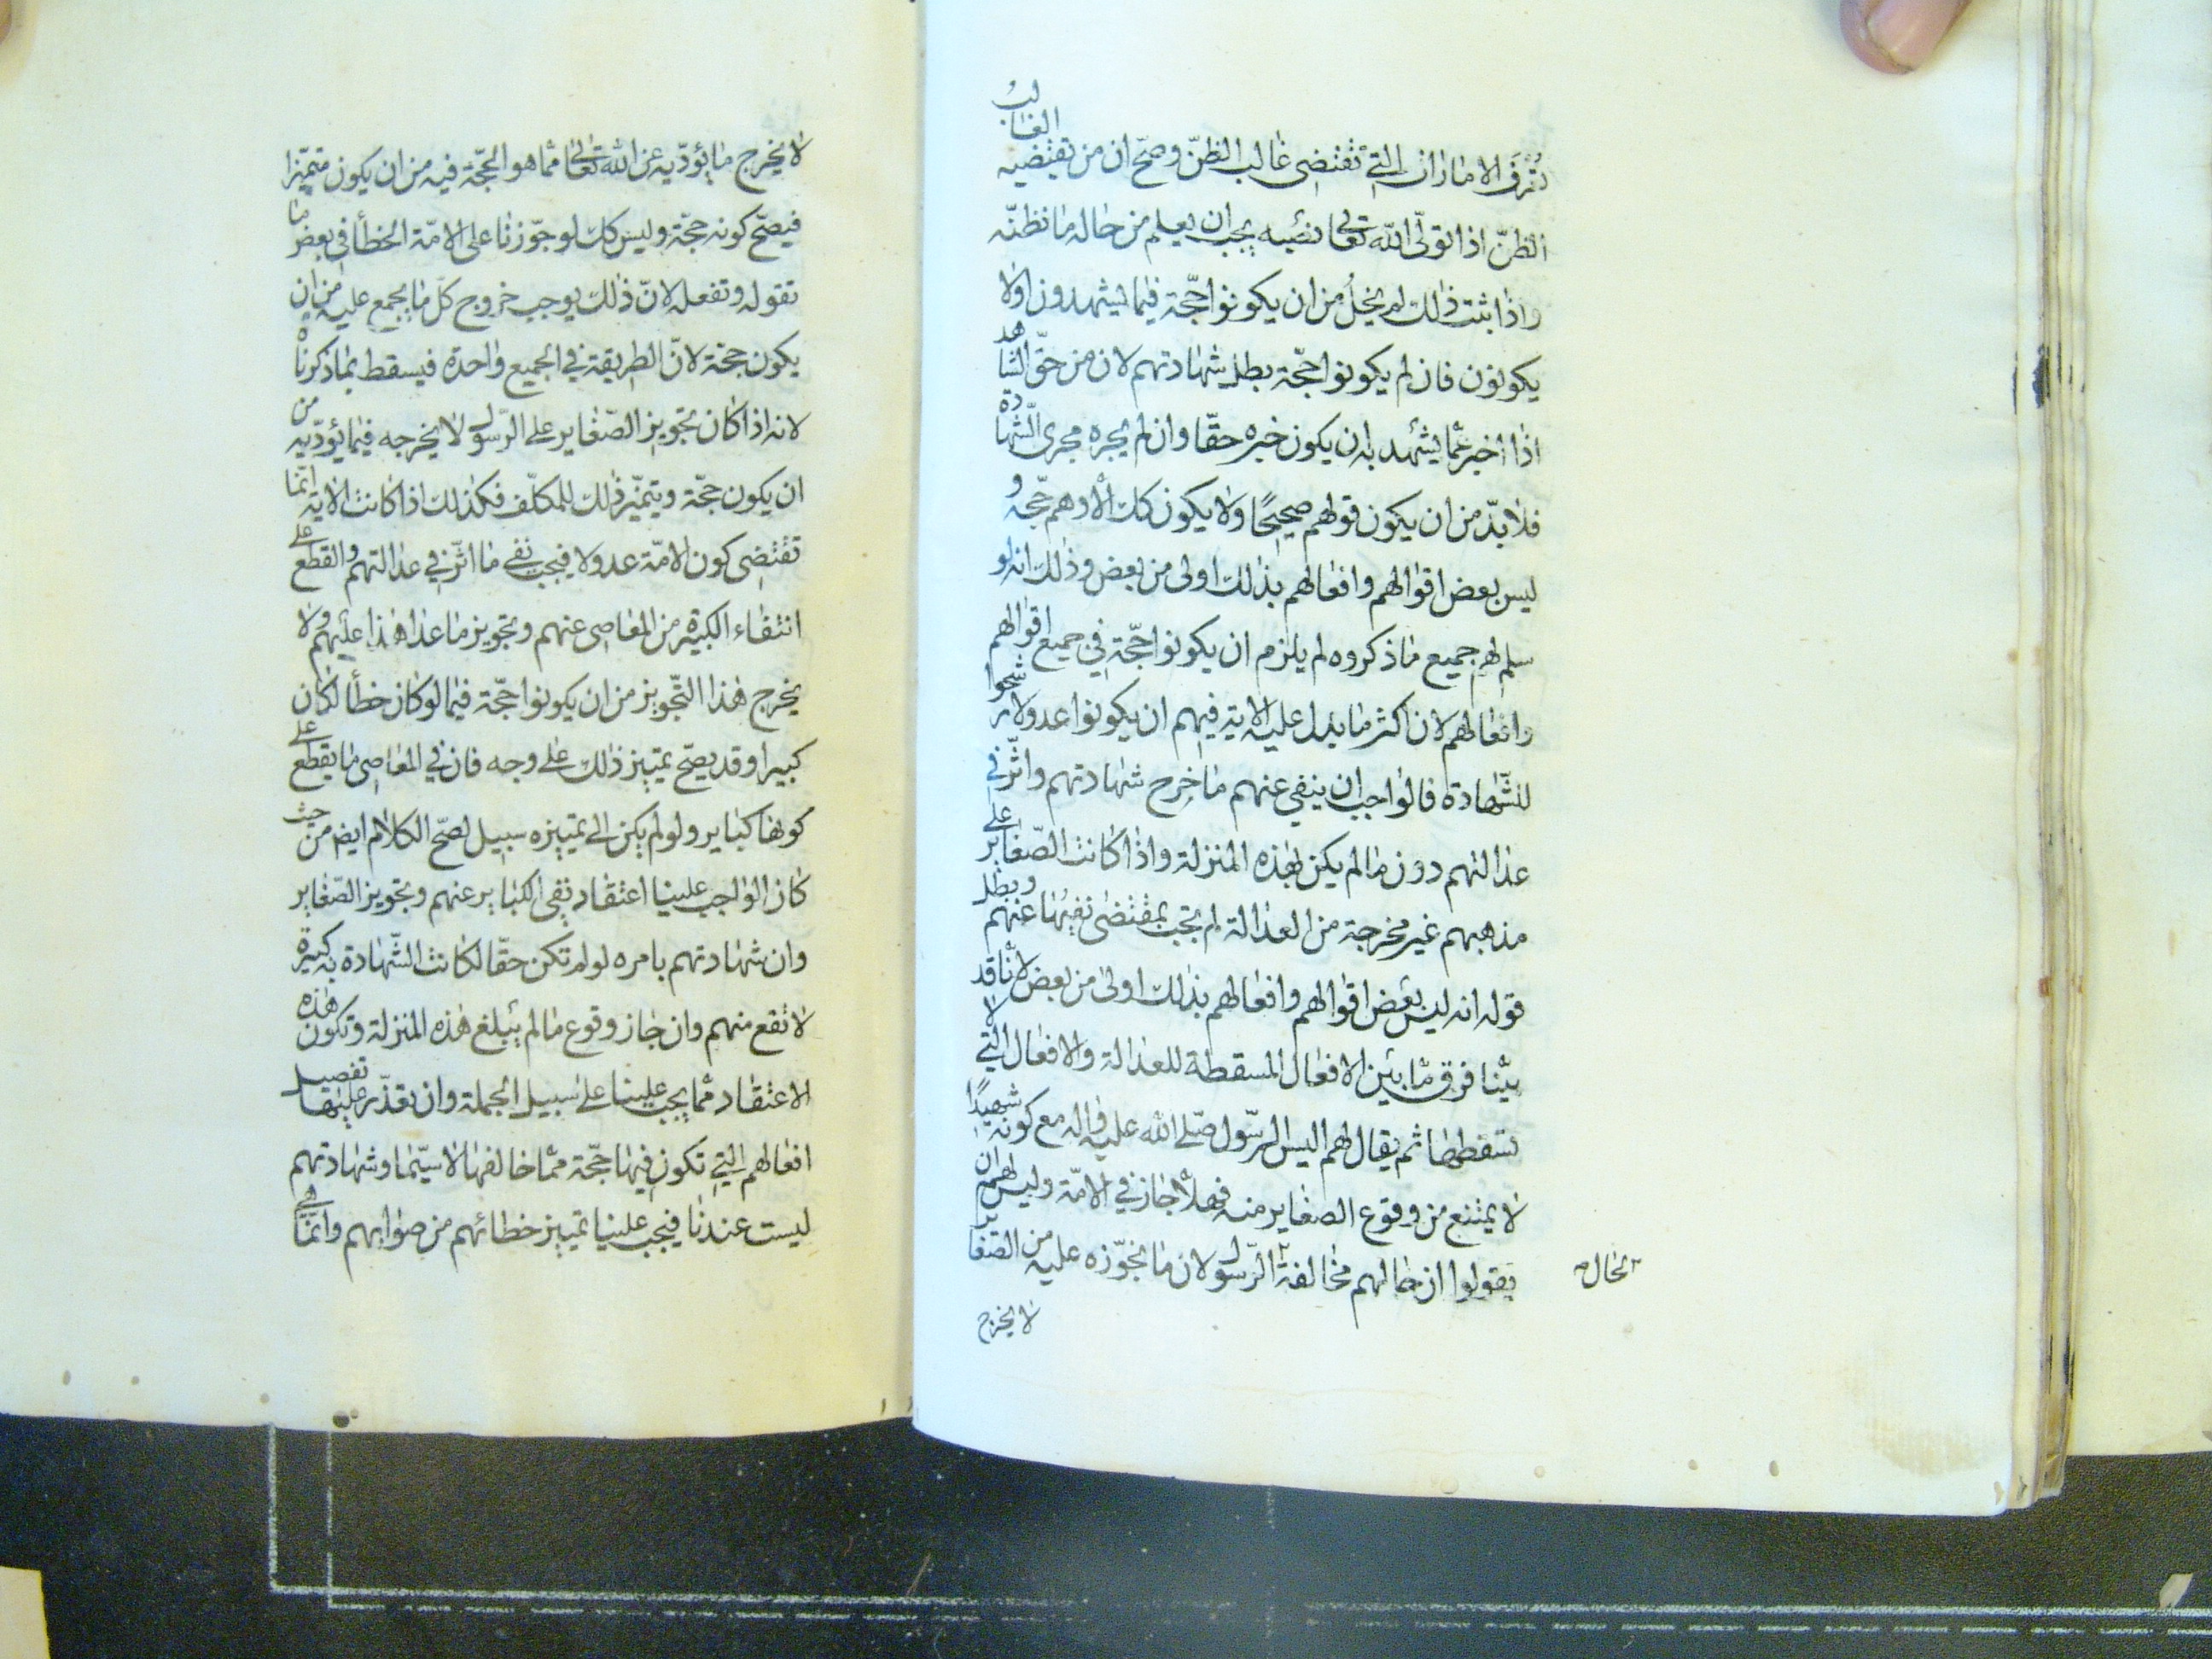 تُعرَف الامارات التي تقتضى غالب الظنّ وصحّ ان من تقتضيه الغالب
الظنّ اذا تولّى الله تعالى نصبه يجب ان يعلم من حاله ما نظنّه
واذا ثبت ذلك لم يخلُ من ان يكونوا حجّة فيما يشهدون اولا
يكونون فان لم يكونوا حجّة بطل شهادتهم لان من حقّ الشاهد
اذا اخبر عمّا يشهد به ان يكون خبره حقّا وان لم يجره مجرى الشّهادة
فلا بدّ من ان يكون قولهم صحيحًا ولا يكون كك الّا وهم حجّة و
ليس بعض اقوالهم وافعالهم بذلك اولى من بعض وذلك انه لو
سلم لهم جميع ما ذكروه لم يلزم ان يكونوا حجّة في جميع اقوالهم
وافعالهم لان اكثر ما يدل عليه الاية فيهم ان يكونوا عدولا رشحوا
للشّهادة فالواجب ان ينفي عنهم ما جرح شهادتهم واثّر في
عدالتهم دون ما لم يكن بهذه المنزلة واذا كانت الصّغاير على
مذهبهم غير مخرجة من العدالة لم يجب بمقتضى نفيها عنهم وبطل
قوله انه ليس بعض اقوالهم وافعالهم بذلك اولى من بعض لانّا قد
بيّنا فرق ما بين الافعال المسقطة للعدالة والافعال التي لا
تسقطها ثم يقال لهم اليس الرّسول صلّى الله عليه واله مع كونه شهيدًا
لا يمتنع من وقوع الصغاير منه فهلّا جاز في الامّة وليس لهم ان
يقولوا ان حالهم مخالفة الرّسول لان ما نجوّزه عليه من الصّغاير
لحال
لا يخرج
لا يخرج ما يؤدّيه عن الله تعالى ممّا هو الحجّة فيه من ان يكون متميّزا
فيصحّ كونه حجّة وليس كك لو جوّزنا على الامّة الخطأ في بعض ما
تقوله وتفعله لانّ ذلك يوجب خروج كلّ ما يجمع عليه من ان
يكون حجة لانّ الطريقة في الجميع واحدة فيسقط بما ذكرناه
لانه اذا كان تجويز الصّغاير على الرّسول لا يخرجه فيما يؤدّيه من
ان يكون حجّة ويتميّز ذلك للمكلّف فكذلك اذا كانت الاية انّما
تقتضى كون الامّة عدولا فيجب نفى ما اثّر في عدالتهم والقطع على
انتفاء الكبيرة من المعاصى عنهم وتجويز ما عدا هذا عليهم ولا
يخرج هذا التّجويز من ان يكونوا حجّة فيما لو كان خطأ لكان
كبيرا وقد يصحّ تمييز ذلك على وجه فان في المعاصى ما يقطع على
كونها كباير ولو لم يكن الى تمييزه سبيل لصحّ الكلام ايضا من حيث
كان الواجب علينا اعتقاد نفى الكباير عنهم وتجويز الصّغاير
وان شهادتهم بامره لو لم تكن حقّا لكانت الشّهادة به كبيرة
لا تقع منهم وان جاز وقوع ما لم يبلغ هذه المنزلة وتكون هذه
الاعتقاد ممّا يجب علينا على سبيل الجملة وان تعذّر علينا تفصيل
افعالهم التي تكون فيها حجّة ممّا خالفها لا سيّما وشهادتهم
ليست عندنا فيجب علينا تمييز خطائهم من صوابهم وانّما هى